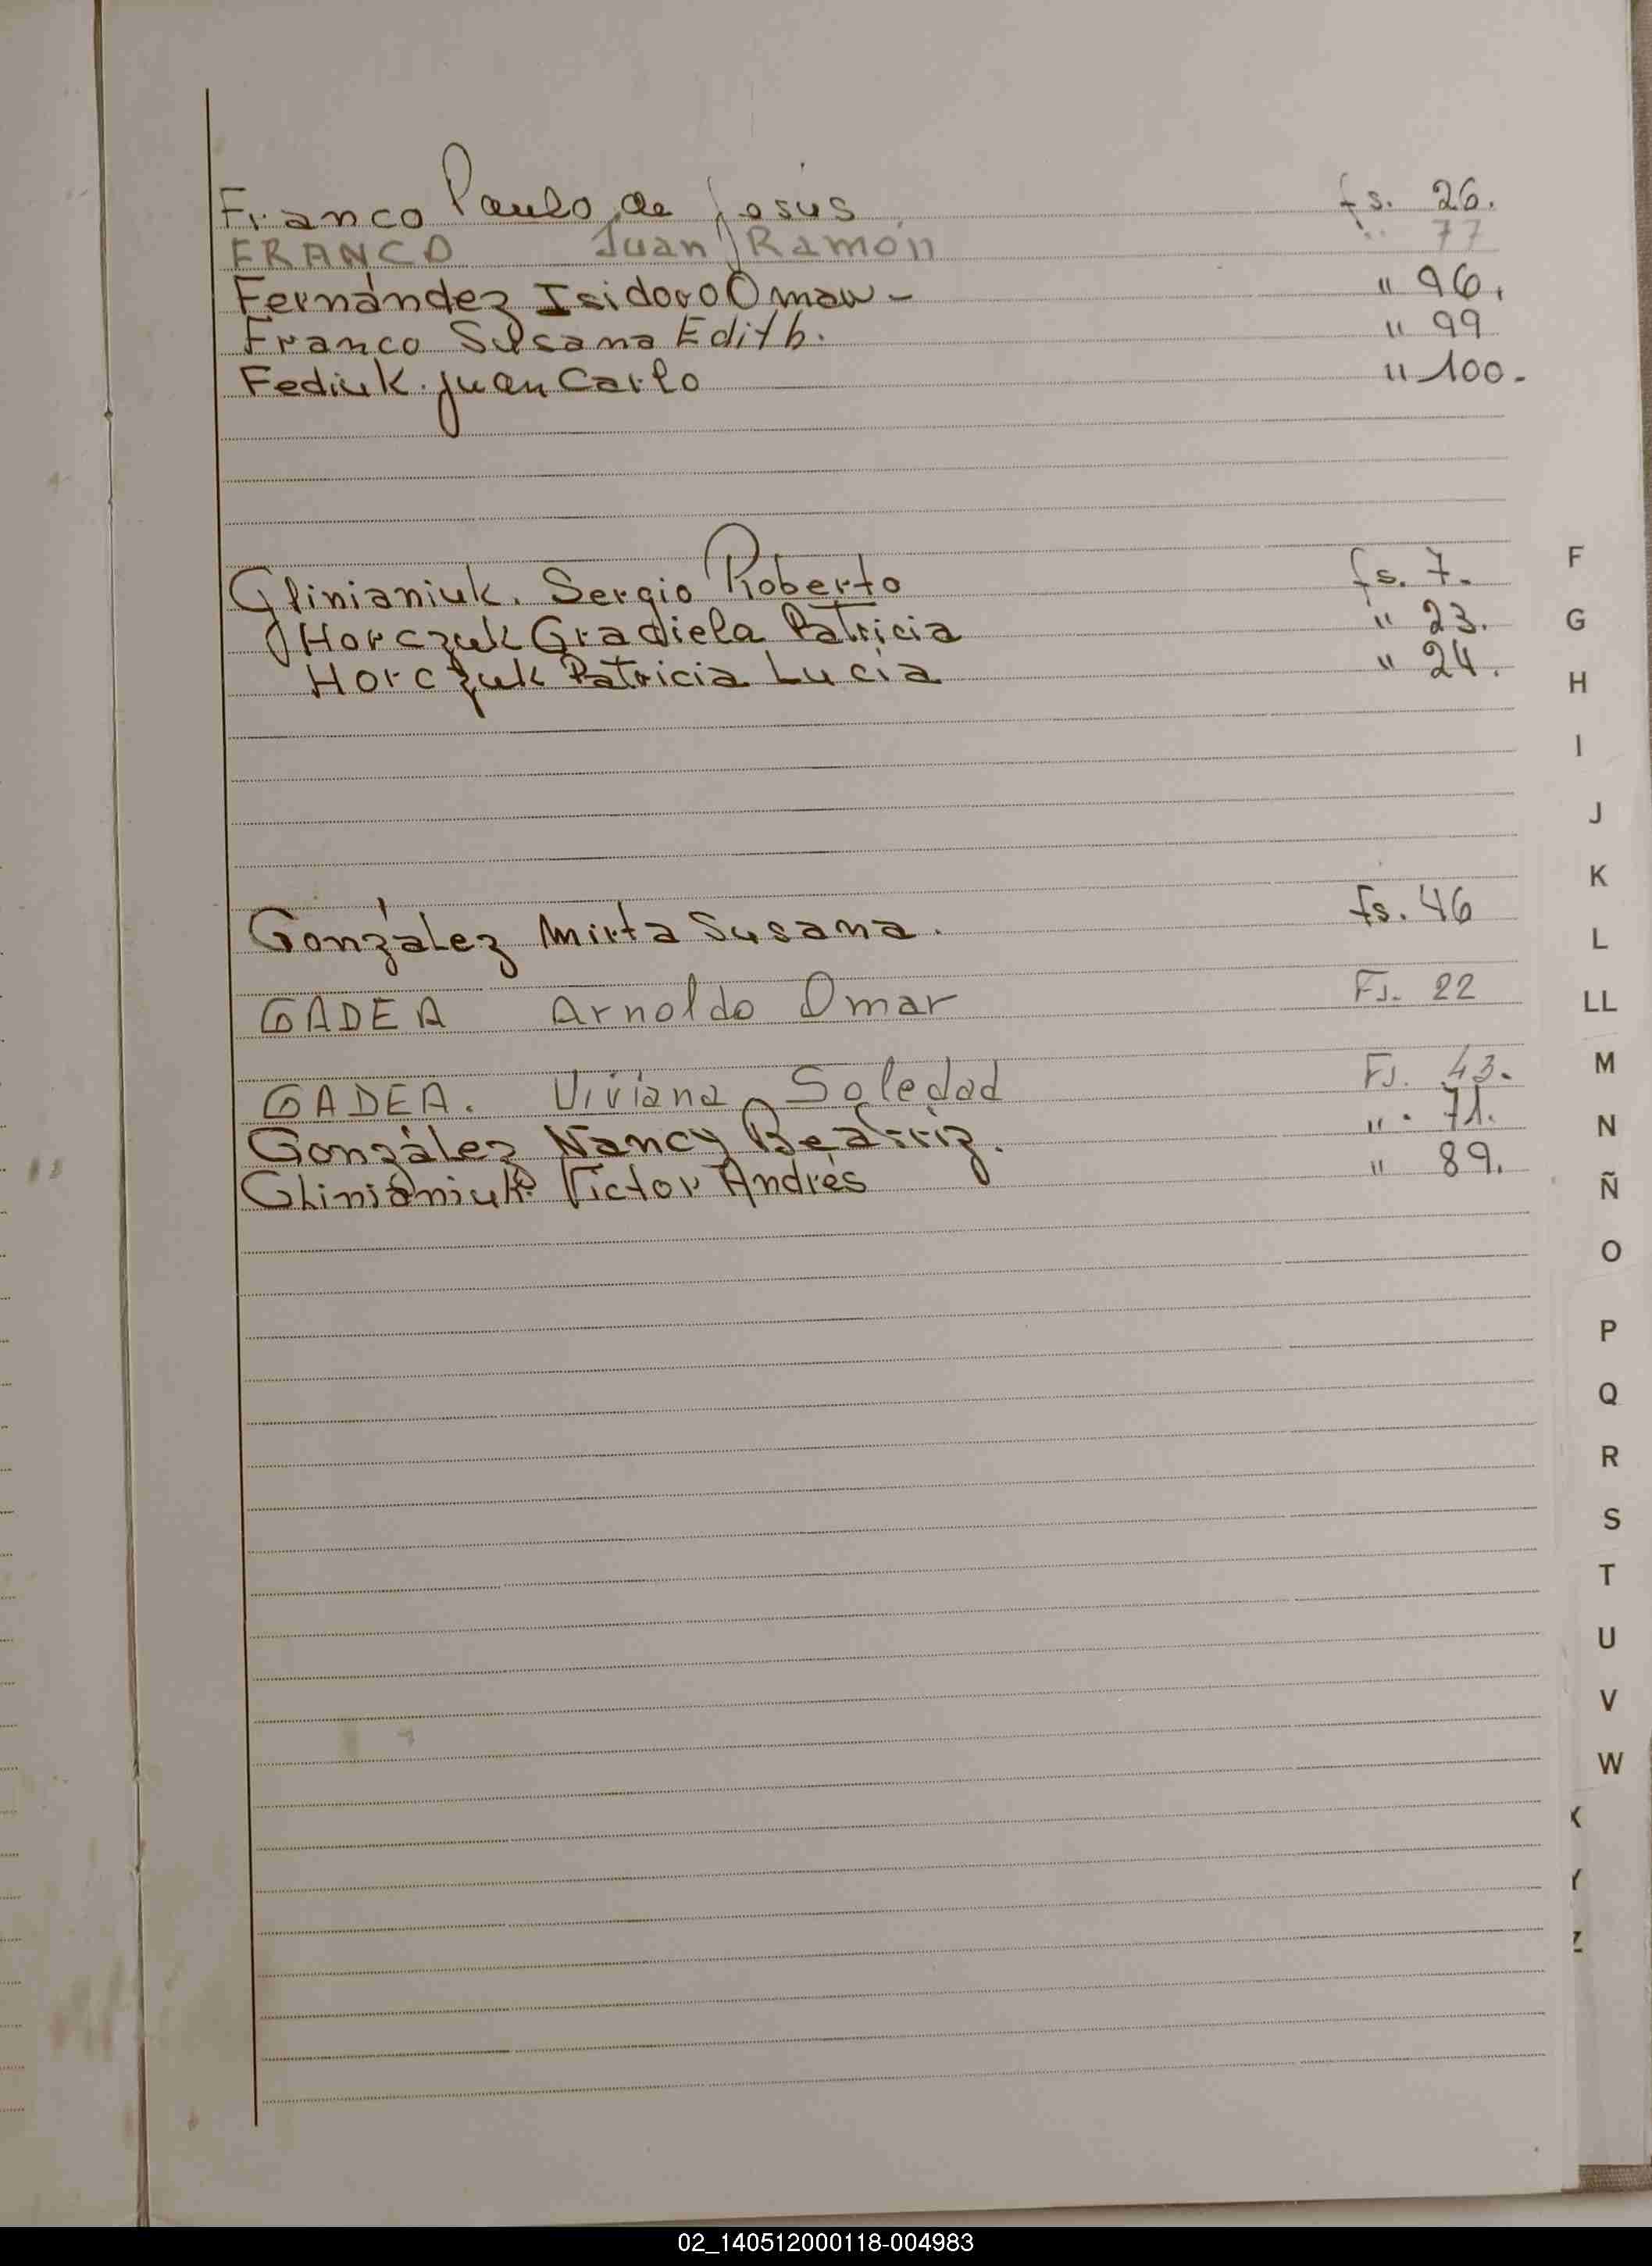 Franco Paulo de Jesús fs. 26.
FRANCO Juan Ramón " 77
Fernández Isidoro Omar - " 96.
Franco Susana Edith. " 99
Fediuk. Juan Carlo " 100.
Glinianiuk. Sergio Roberto fs. 7.
Horczuk Graciela Patricia " 23.
Horczuk Patricia Lucia " 24.
González Mirta Susana. fs. 46
GADEA Arnoldo Omar Fs. 22
GADEA. Viviana Soledad Fs. 43.
González Nancy Beatriz. " . 71.
Glinianiuk Víctor Andrés " 89.
F
G
H
I
J
K
L
LL
M
N
Ñ
O
P
Q
R
S
T
U
V
W
X
Y
Z
02_140512000118-004983